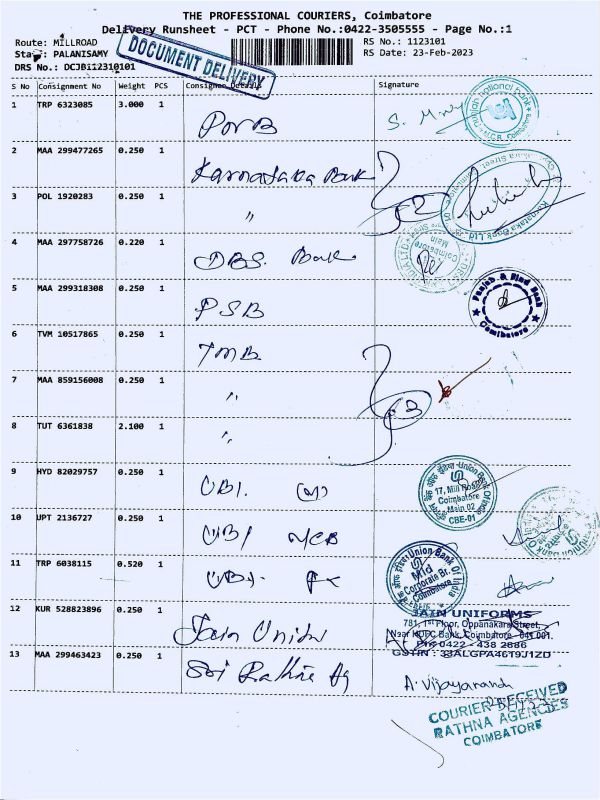 THE PROFESSIONAL COURIERS, Coimbatore
Delivery Runsheet - PCT - Phone No.:0422-3505555 - Page No.:1
Route: MILLROAD
RS No.: 1123101
PALANISAMY
RS Date: 23-Feb-2023
DRS No.: DCJB112310101
DOCUMENT DELIVERY
S No Consignment No Weight PCS Consignee Details Signature
1 TRP 6323085 3.000 1
2 MAA 299477265 0.250 1 Karnataka Bank
3 POL 1920283 0.250 1 "
4 MAA 297758726 0.220 1 DBS Bank
5 MAA 299318308 0.250 1 PSB
6 TVM 10517865 0.250 1 TMB
7 MAA 859156008 0.250 1 "
8 TUT 6361838 2.100 1 "
9 HYD 82029757 0.250 1 UBI.
10 UPT 2136727 0.250 1 UBI MCB
11 TRP 6038115 0.520 1 UBI
12 KUR 528823896 0.250 1 Jain Unifor
13 MAA 299463423 0.250 1 Sri Rathna Ag
Punjab & Sind Bank
Coimbatore
Union Bank Of India
17, Mill Road
Coimbatore
Main 02
CBE-01
Union Bank Of India
Mid
Corporate Br.
JAIN UNIFORMS
781, 1st Floor, Oppanakara Street,
Near HDFC Bank, Coimbatore - 641 001.
PH: 0422 - 438 2686
A. Vijayanand
COURIER RECEIVED
RATHNA AGENCIES
COIMBATORE